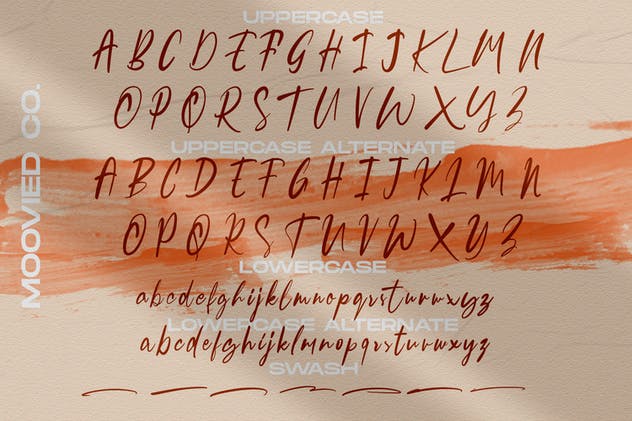 UPPERCASE
A B C D E F G H I J K L M N
O P Q R S T U V W X Y Z
UPPERCASE ALTERNATE
A B C D E F G H I J K L M N
O P Q R S T U V W X Y Z
LOWERCASE
abcdefghijklmnopqrstuvwxyz
LOWERCASE ALTERNATE
abcdefghijklmnopqrstuvwxyz
SWASH
MOOVIED CO.